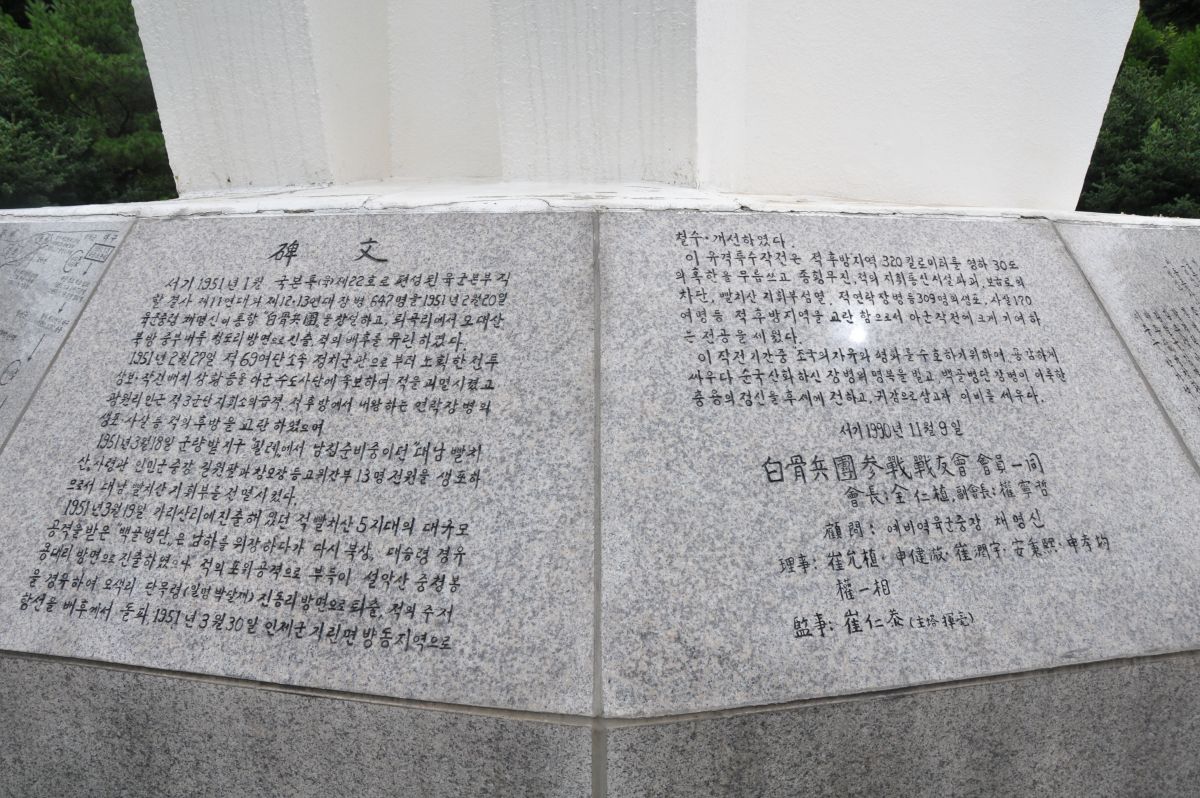 碑 文
서기 1951年 1월 국본특(육)제22호로 편성된 육군본부 직
할 결사 제11연대와 제12·13연대 장병 647명을 1951년 2월 20일
육군중령 채명신이 통합 "白骨兵團"을 창설하고, 퇴곡리에서 오대산
북방 중부버덕 청도리 방면으로 진출 적의 배후를 유린하였다.
1951년 2월 27일 적 69여단 소속 정치군관으로부터 노획한 전투
상보·작전배치 상황 등을 아군 수도사단에 급보하여 적을 괴멸시켰고
광원리 인근 적 3군단 지휘소의 습격, 적 후방에서 내왕하는 연락장병의
생포·사살 등 적의 후방을 교란하였으며
1951년 3월 18일 군량밭지구 "필례"에서 남침 준비중이던 "대남 빨치
산"사령관 인민군중장 길원팔과 참모장 등 고위간부 13명 전원을 생포하
므로서 대남 빨치산 지휘부를 전멸시켰다.
1951년 3월 19일 가리산리에 진출해 있던 적 빨치산 5지대의 대규모
공격을 받은 "백골병단"은 남하를 위장하다가 다시 북상, 대승령 경유
용대리 방면으로 진출하였으나 적의 포위공격으로 부득이 설악산 중청봉
을 경유하여 오색리 단목령(일명 박달재) 진동리 방면으로 퇴출, 적의 주저
항선을 배후에서 돌파, 1951년 3월 30일 인제군 기린면 방동지역으로
철수·개선하였다.
이 유격특수작전은 적 후방지역 320킬로미터를 영하 30도
의 혹한을 무릅쓰고 종횡무진, 적의 지휘통신시설 파괴, 보급로의
차단, 빨치산 지휘부 섬멸, 적 연락장병 등 309명의 생포, 사살 170
여명 등 적 후방지역을 교란 함으로서 아군작전에 크게 기여하
는 전공을 세웠다.
이 작전기간중 조국의 자유와 평화를 수호하기위하여 용감하게
싸우다 순국산화하신 장병의 명복을 빌고, 백골병단 장병이 이룩한
충용의 정신을 후세에 전하고, 귀감으로 삼고자 이 비를 세우다.
서기 1990년 11월 9일
白骨兵團 参戰戰友會 會員一同
會長: 全仁植, 副會長: 崔寧哲
顧問: 예비역육군중장 채명신
理事: 崔允植· 申健澈· 崔潤宇· 安秉熙· 申孝均
權一相
監事: 崔仁泰